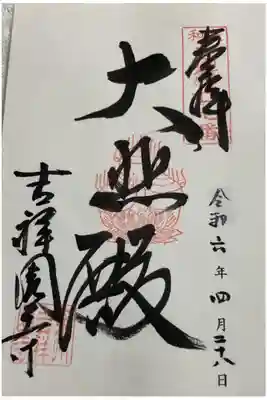 奉拝
令和六年四月二十八日
大悲殿
吉祥